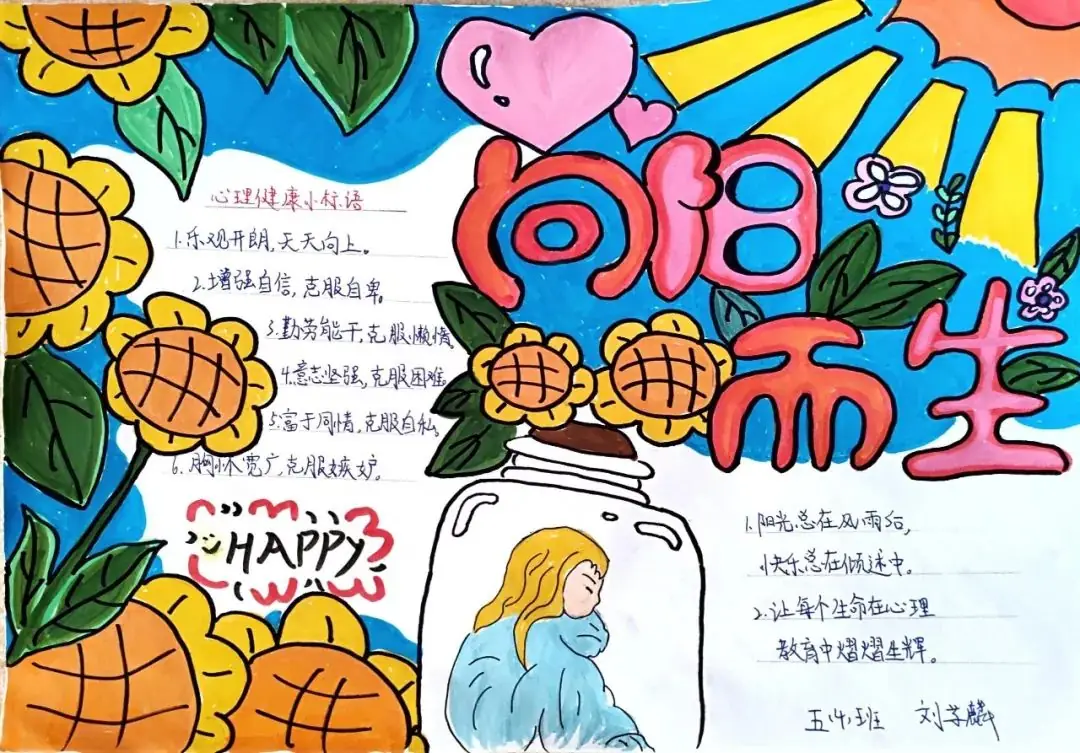 向阳
而生
心理健康小标语
1.乐观开朗,天天向上。
2.增强自信,克服自卑。
3.勤劳能干,克服懒惰
4.意志坚强,克服困难
5.富于同情,克服自私。
6.胸怀宽广克服嫉妒。
HAPPY
1.阳光总在风雨后,
快乐总在倾述中。
2.让每个生命在心理
教育中熠熠生辉。
五(4)班 刘芓麟